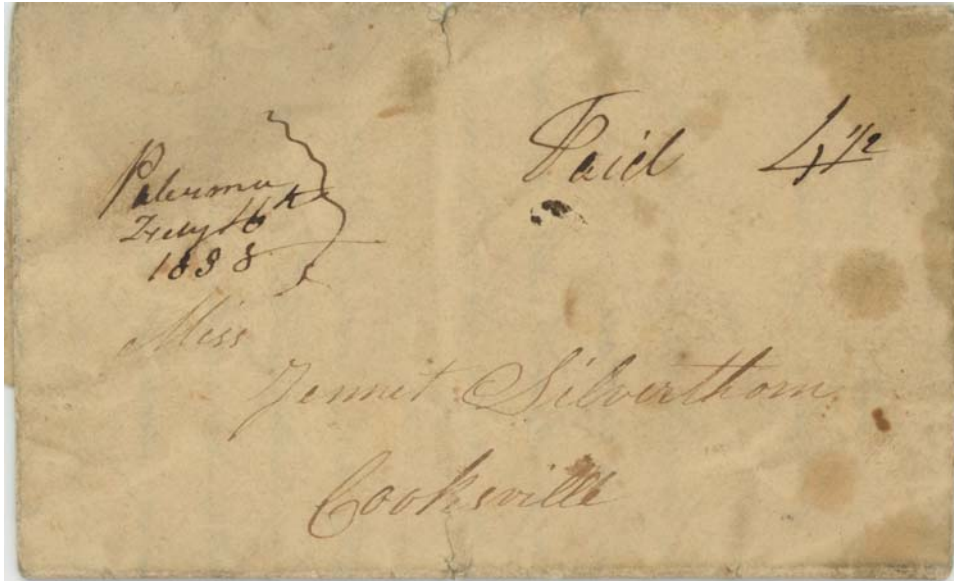 Palermo
Feby 16th
1838
Paid 4 1/2
Miss
Jennet Silverthorn
Cooksville